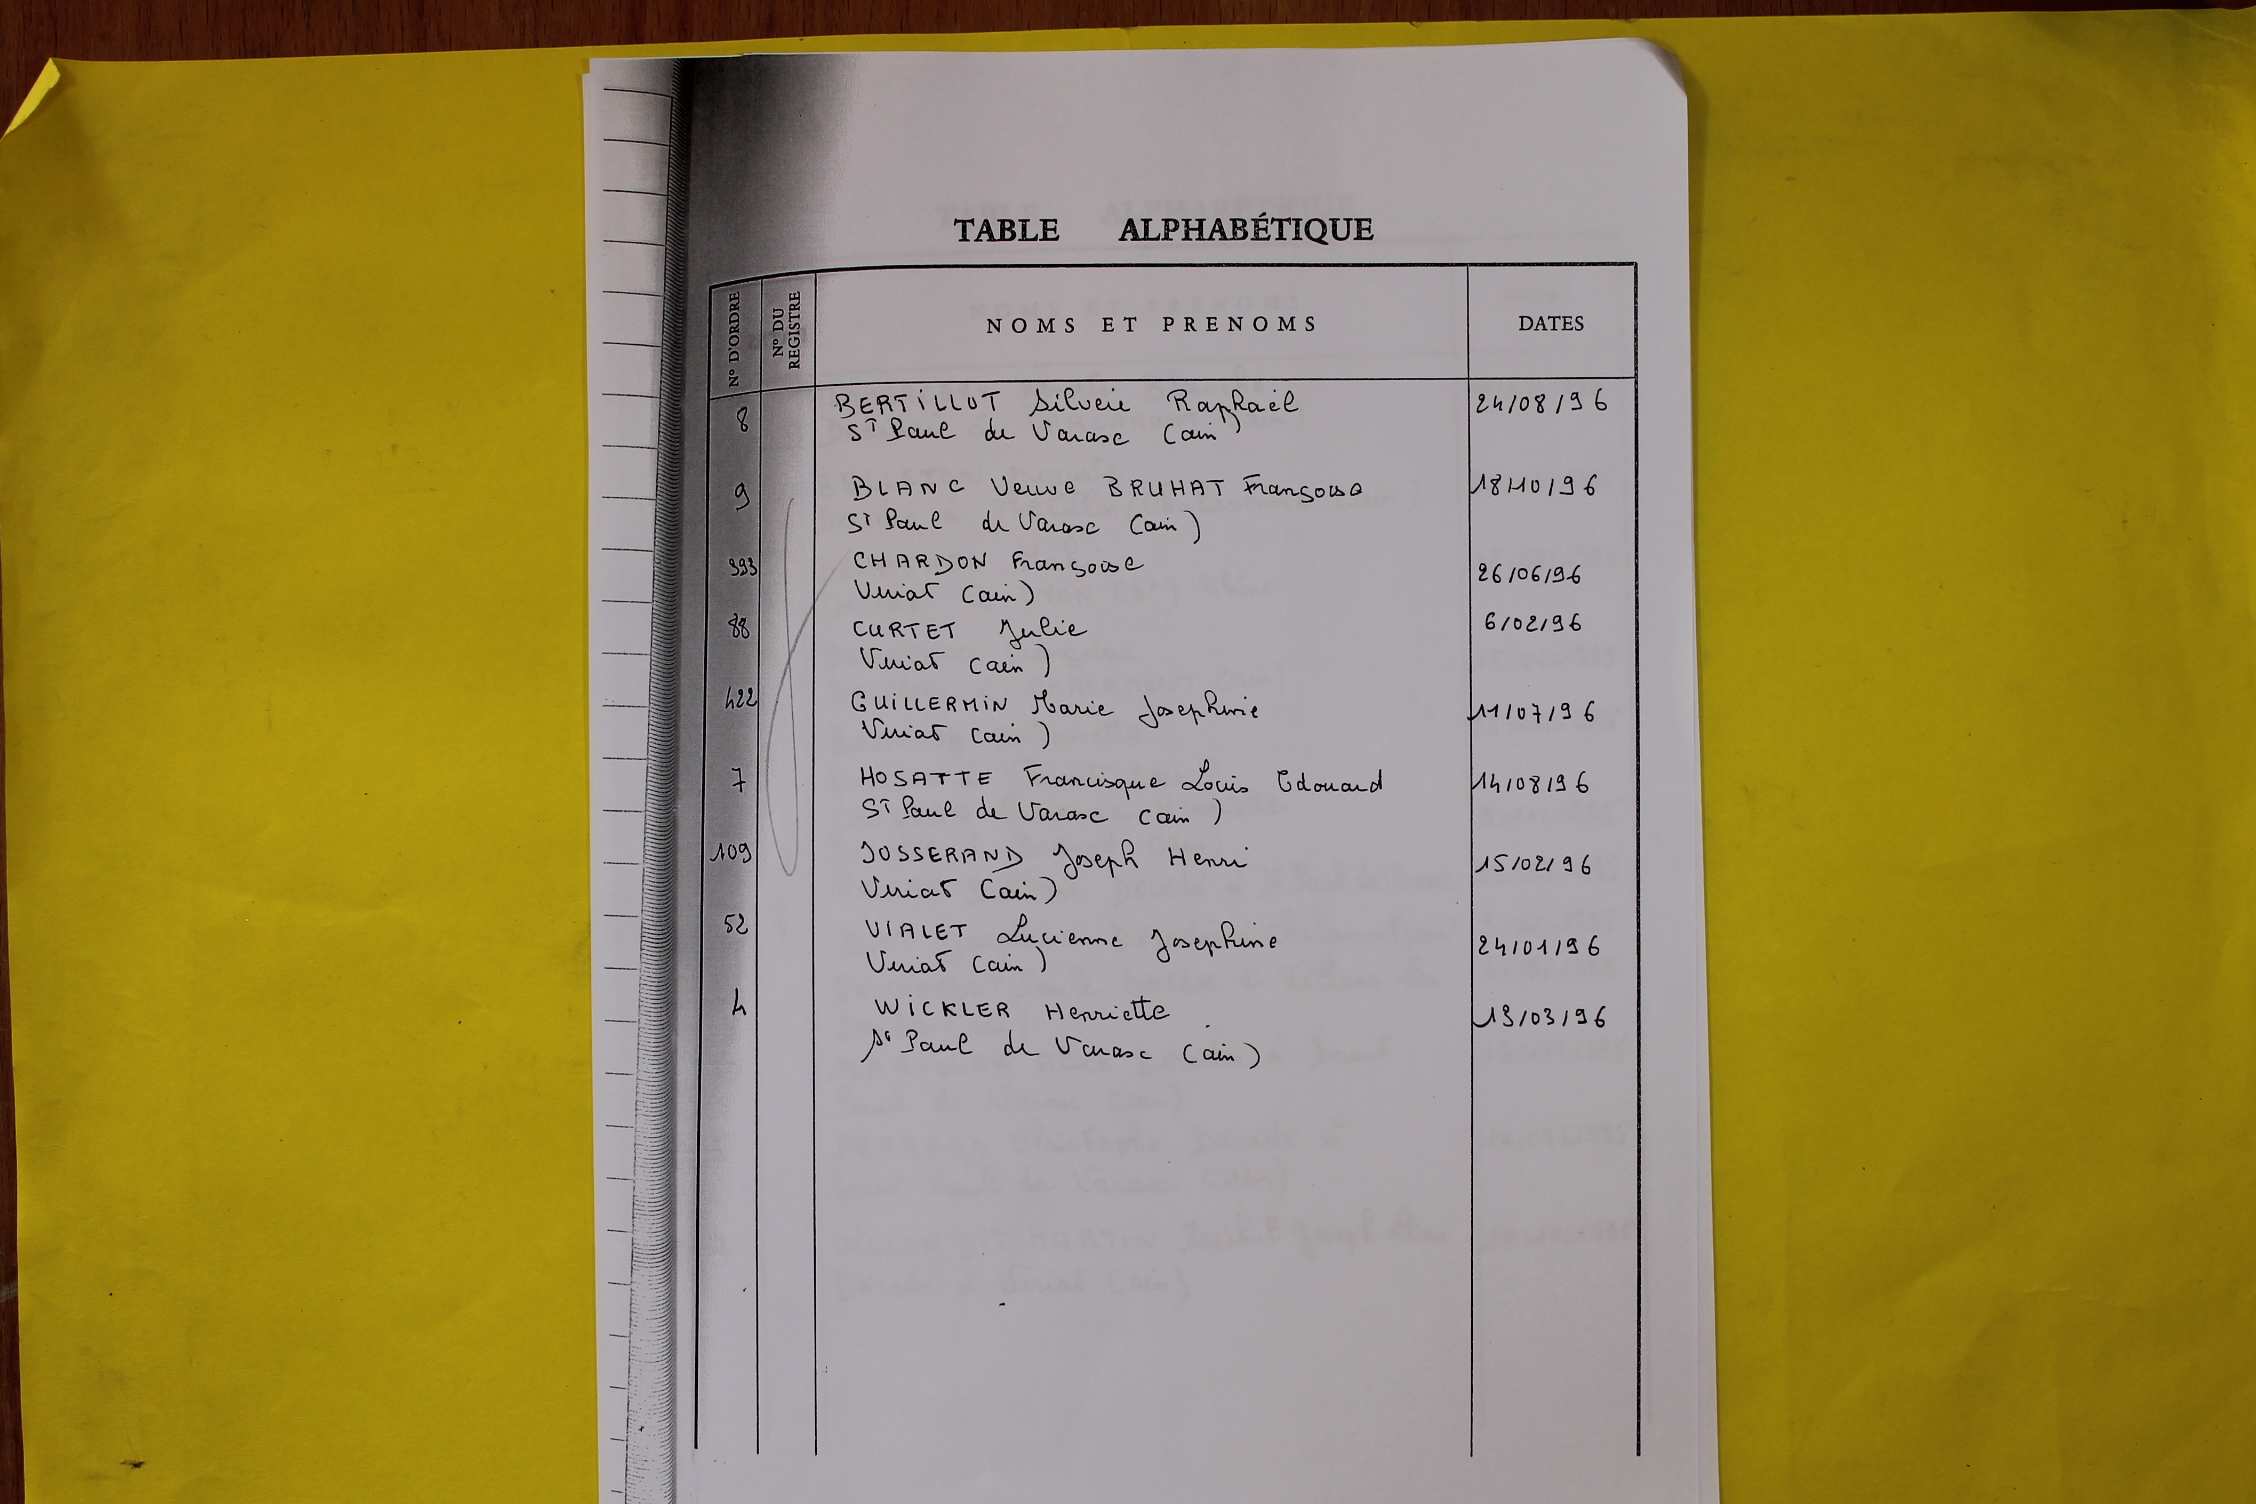 TABLE ALPHABÉTIQUE
N° D'ORDRE N° DU REGISTRE NOMS ET PRENOMS DATES
8 BERTILLOT Silverie Raphaël 24/08/96
ST Paul de Varasc (ain)
9 BLANC Veuve BRUHAT Françoise 18/10/96
ST Paul de Varasc (ain)
393 CHARDON Françoise 26/06/96
Viriat (ain)
88 CURTET Julie 6/02/96
Viriat (ain)
422 GUILLERMIN Marie Josephine 11/07/96
Viriat (ain)
7 HOSATTE Francisque Louis Edouard 14/08/96
ST Paul de Varasc (ain)
109 JOSSERAND Joseph Henri 15/02/96
Viriat (ain)
52 VIALET Lucienne Josephine 24/01/96
Viriat (ain)
4 WICKLER Henriette 13/03/96
St Paul de Varasc (ain)